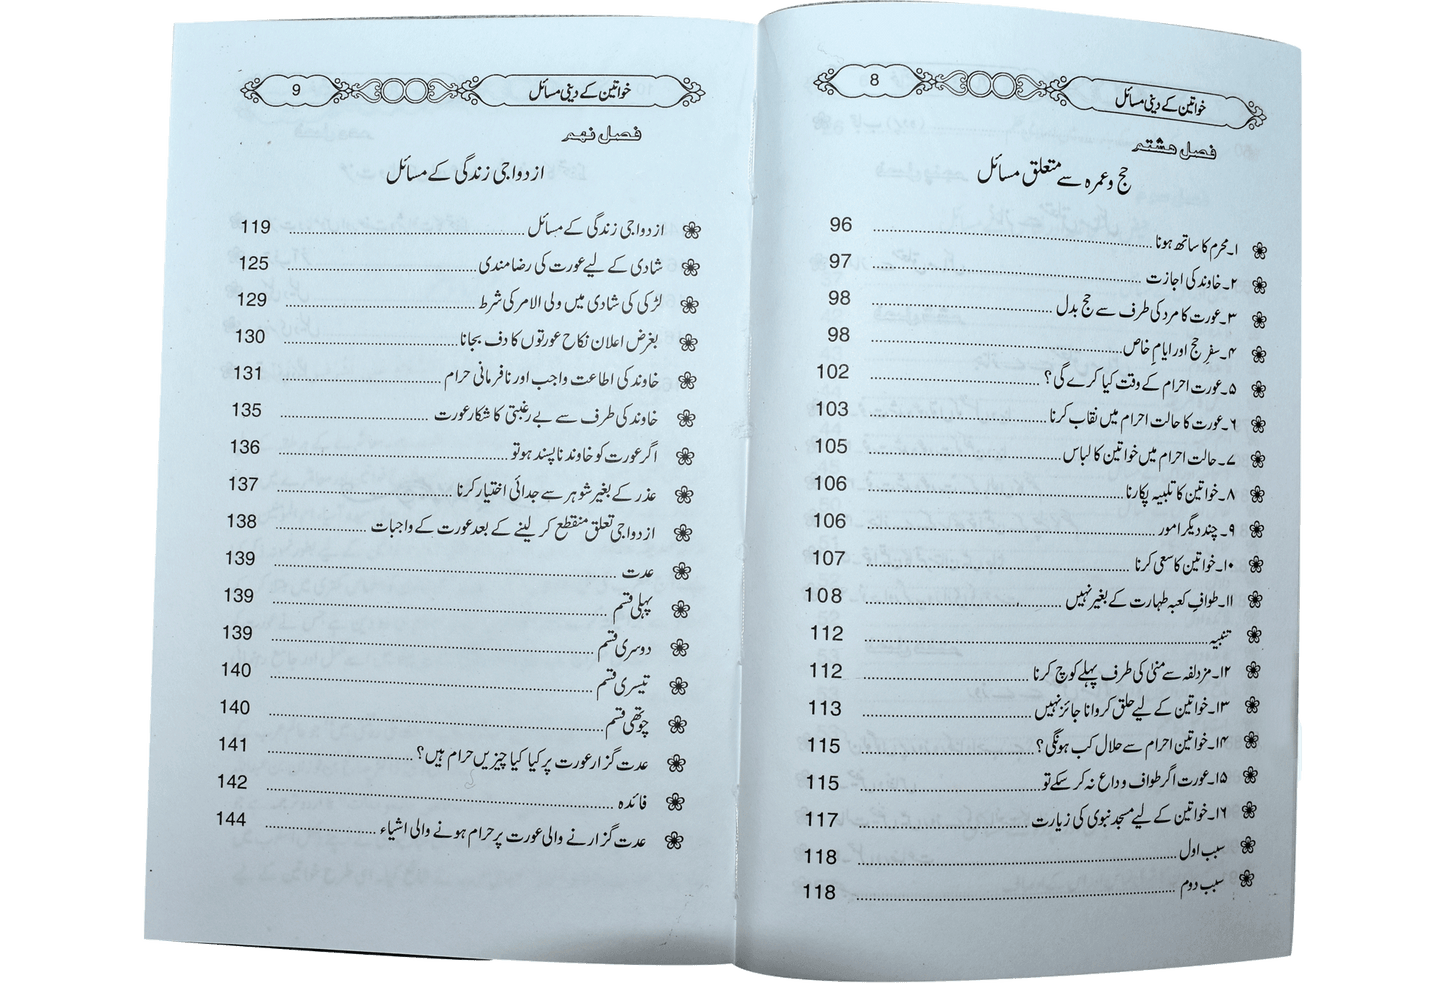 خواتین کے دینی مسائل 8
فصل هشتم
حج و عمرہ سے متعلق مسائل
۱۔ محرم کا ساتھ ہونا 96
۲۔ خاوند کی اجازت 97
۳۔ عورت کا مرد کی طرف سے حج بدل 98
۴۔ سفرِ حج اور ایامِ خاص 98
۵۔ عورت احرام کے وقت کیا کرے گی؟ 102
۶۔ عورت کا حالت احرام میں نقاب کرنا 103
۷۔ حالت احرام میں خواتین کا لباس 105
۸۔ خواتین کا تلبیہ پکارنا 106
۹۔ چند دیگر امور 106
۱۰۔ خواتین کا سعی کرنا 107
۱۱۔ طوافِ کعبہ طہارت کے بغیر نہیں 108
تنبیہ 112
۱۲۔ مزدلفہ سے منیٰ کی طرف پہلے کوچ کرنا 112
۱۳۔ خواتین کے لیے حلق کروانا جائز نہیں 113
۱۴۔ خواتین احرام سے حلال کب ہونگی؟ 115
۱۵۔ عورت اگر طواف وداع نہ کر سکے تو 115
۱۶۔ خواتین کے لیے مسجد نبوی کی زیارت 117
سبب اول 118
سبب دوم 118
خواتین کے دینی مسائل 9
فصل نهم
ازدواجی زندگی کے مسائل
ازدواجی زندگی کے مسائل 119
شادی کے لیے عورت کی رضامندی 125
لڑکی کی شادی میں ولی الامر کی شرط 129
بغرض اعلان نکاح عورتوں کا دف بجانا 130
خاوند کی اطاعت واجب اور نافرمانی حرام 131
خاوند کی طرف سے بے رغبتی کا شکار عورت 135
اگر عورت کو خاوند ناپسند ہو تو 136
عذر کے بغیر شوہر سے جدائی اختیار کرنا 137
ازدواجی تعلق منقطع کر لینے کے بعد عورت کے واجبات 138
عدت 139
پہلی قسم 139
دوسری قسم 139
تیسری قسم 140
چوتھی قسم 140
عدت گزار عورت پر کیا کیا چیزیں حرام ہیں؟ 141
فائدہ 142
عدت گزارنے والی عورت پر حرام ہونے والی اشیاء 144